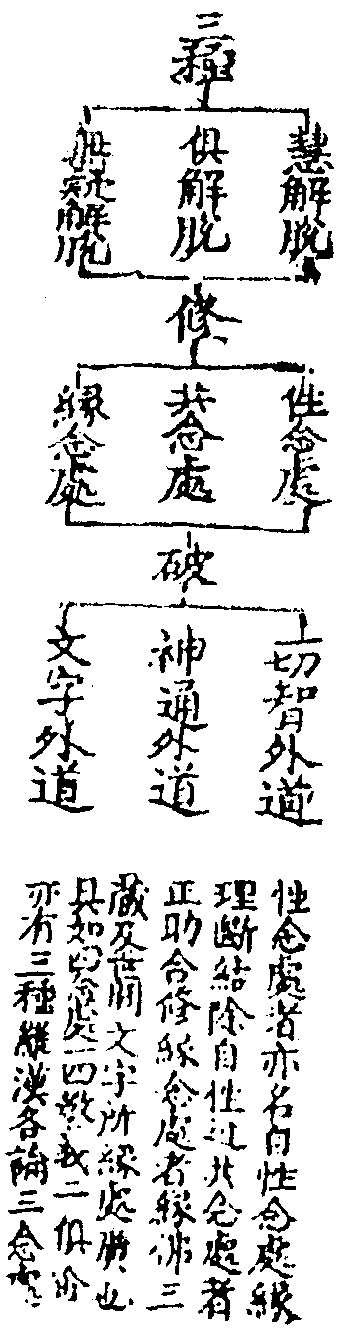 三種
慧解脫
俱解脫
無疑解脫
修
性念處
共念處
緣念處
破
一切智外道
神通外道
文字外道
性念處者亦名自性念處緣
理斷結除自性過共念處者
正助合修緣念處者緣佛三
藏及世間文字所緣處廣也
具如四念處一四教義二俱
亦有三種羅漢各論三念處